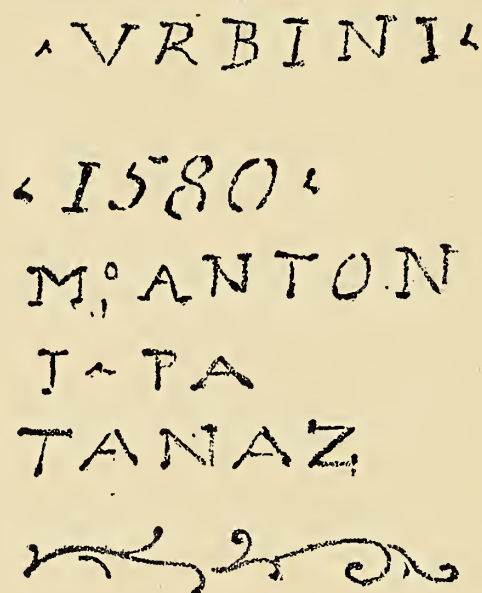 · VRBINI ·
· 1580 ·
M.º ANTON
I · PA
TANAZ